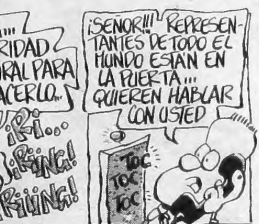 RIDAD
RAL PARA
ACERLO...
¡RI...
¡RIING!
¡RIIING!
¡SEÑOR!!! REPRESEN-
TANTES DE TODO EL
MUNDO ESTÁN EN
LA PUERTA...
QUIEREN HABLAR
CON USTED
TOC
TOC
TOC